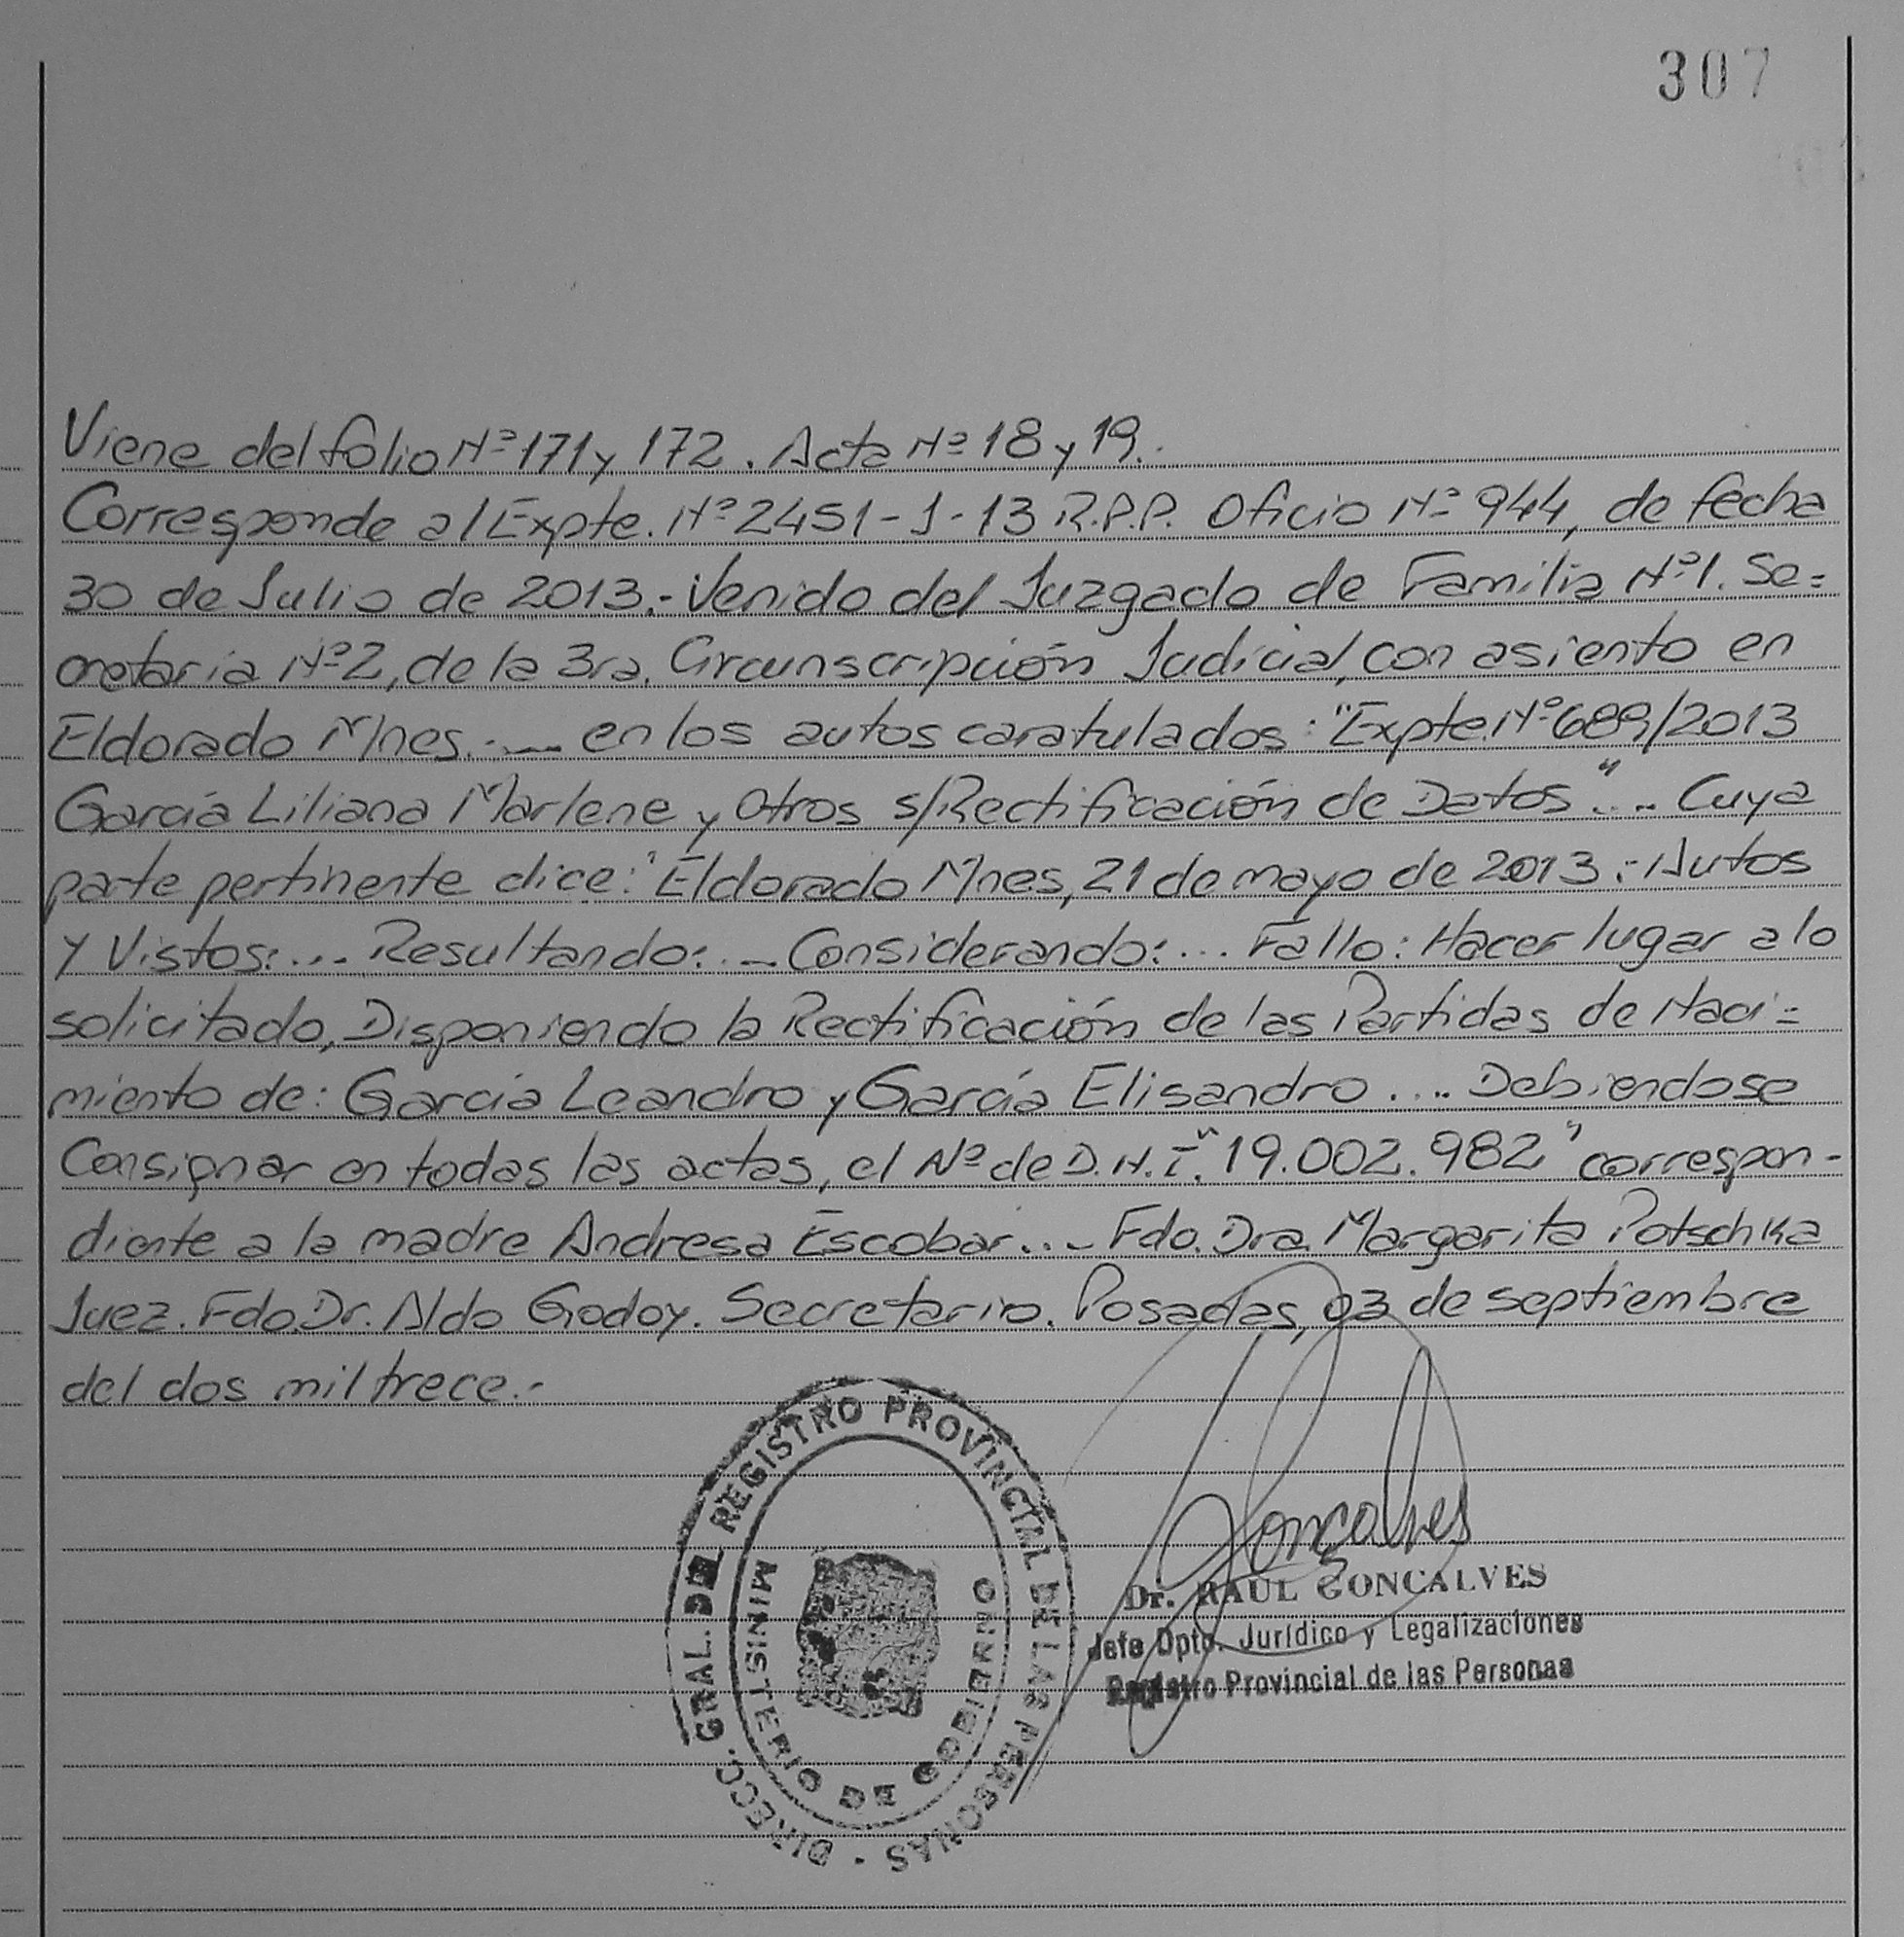 307
Viene del folio Nº 171 y 172. Acta Nº 18 y 19.
Corresponde al Expte. Nº 2451-J-13 R.P.P. Oficio Nº 944, de fecha
30 de Julio de 2013.- Venido del Juzgado de Familia Nº 1. Se=
cretaria Nº 2, de la 3ra. Circunscripción Judicial, con asiento en
Eldorado Mnes.-__ en los autos caratulados: "Expte. Nº 689/2013
García Liliana Marlene y Otros s/Rectificación de Datos"... Cuya
parte pertinente dice: "Eldorado Mnes, 21 de mayo de 2013.- Autos
Y Vistos:... Resultando:... Considerando:... Fallo: Hacer lugar a lo
solicitado, Disponiendo la Rectificación de las Partidas de Naci=
miento de: García Leandro y García Elisandro .... Debiendose
Consignar en todas las actas, el Nº de D.N.I. "19.002.982" correspon-
diente a la madre Andresa Escobar... Fdo. Dra. Margarita Potschka
Juez. Fdo. Dr. Aldo Godoy. Secretario. Posadas, 03 de septiembre
del dos mil trece.-
DIRECC. GRAL. DEL REGISTRO PROVINCIAL DE LAS PERSONAS -
MINISTERIO DE GOBIERNO
Gonçalves
Dr. RAUL GONCALVES
Jefe Dpto. Jurídico y Legalizaciones
Registro Provincial de las Personas